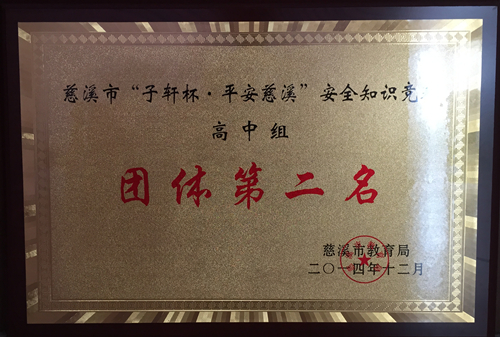 慈溪市“子轩杯·平安慈溪”安全知识竞
高中组
团体第二名
慈溪市教育局
二〇一四年十二月